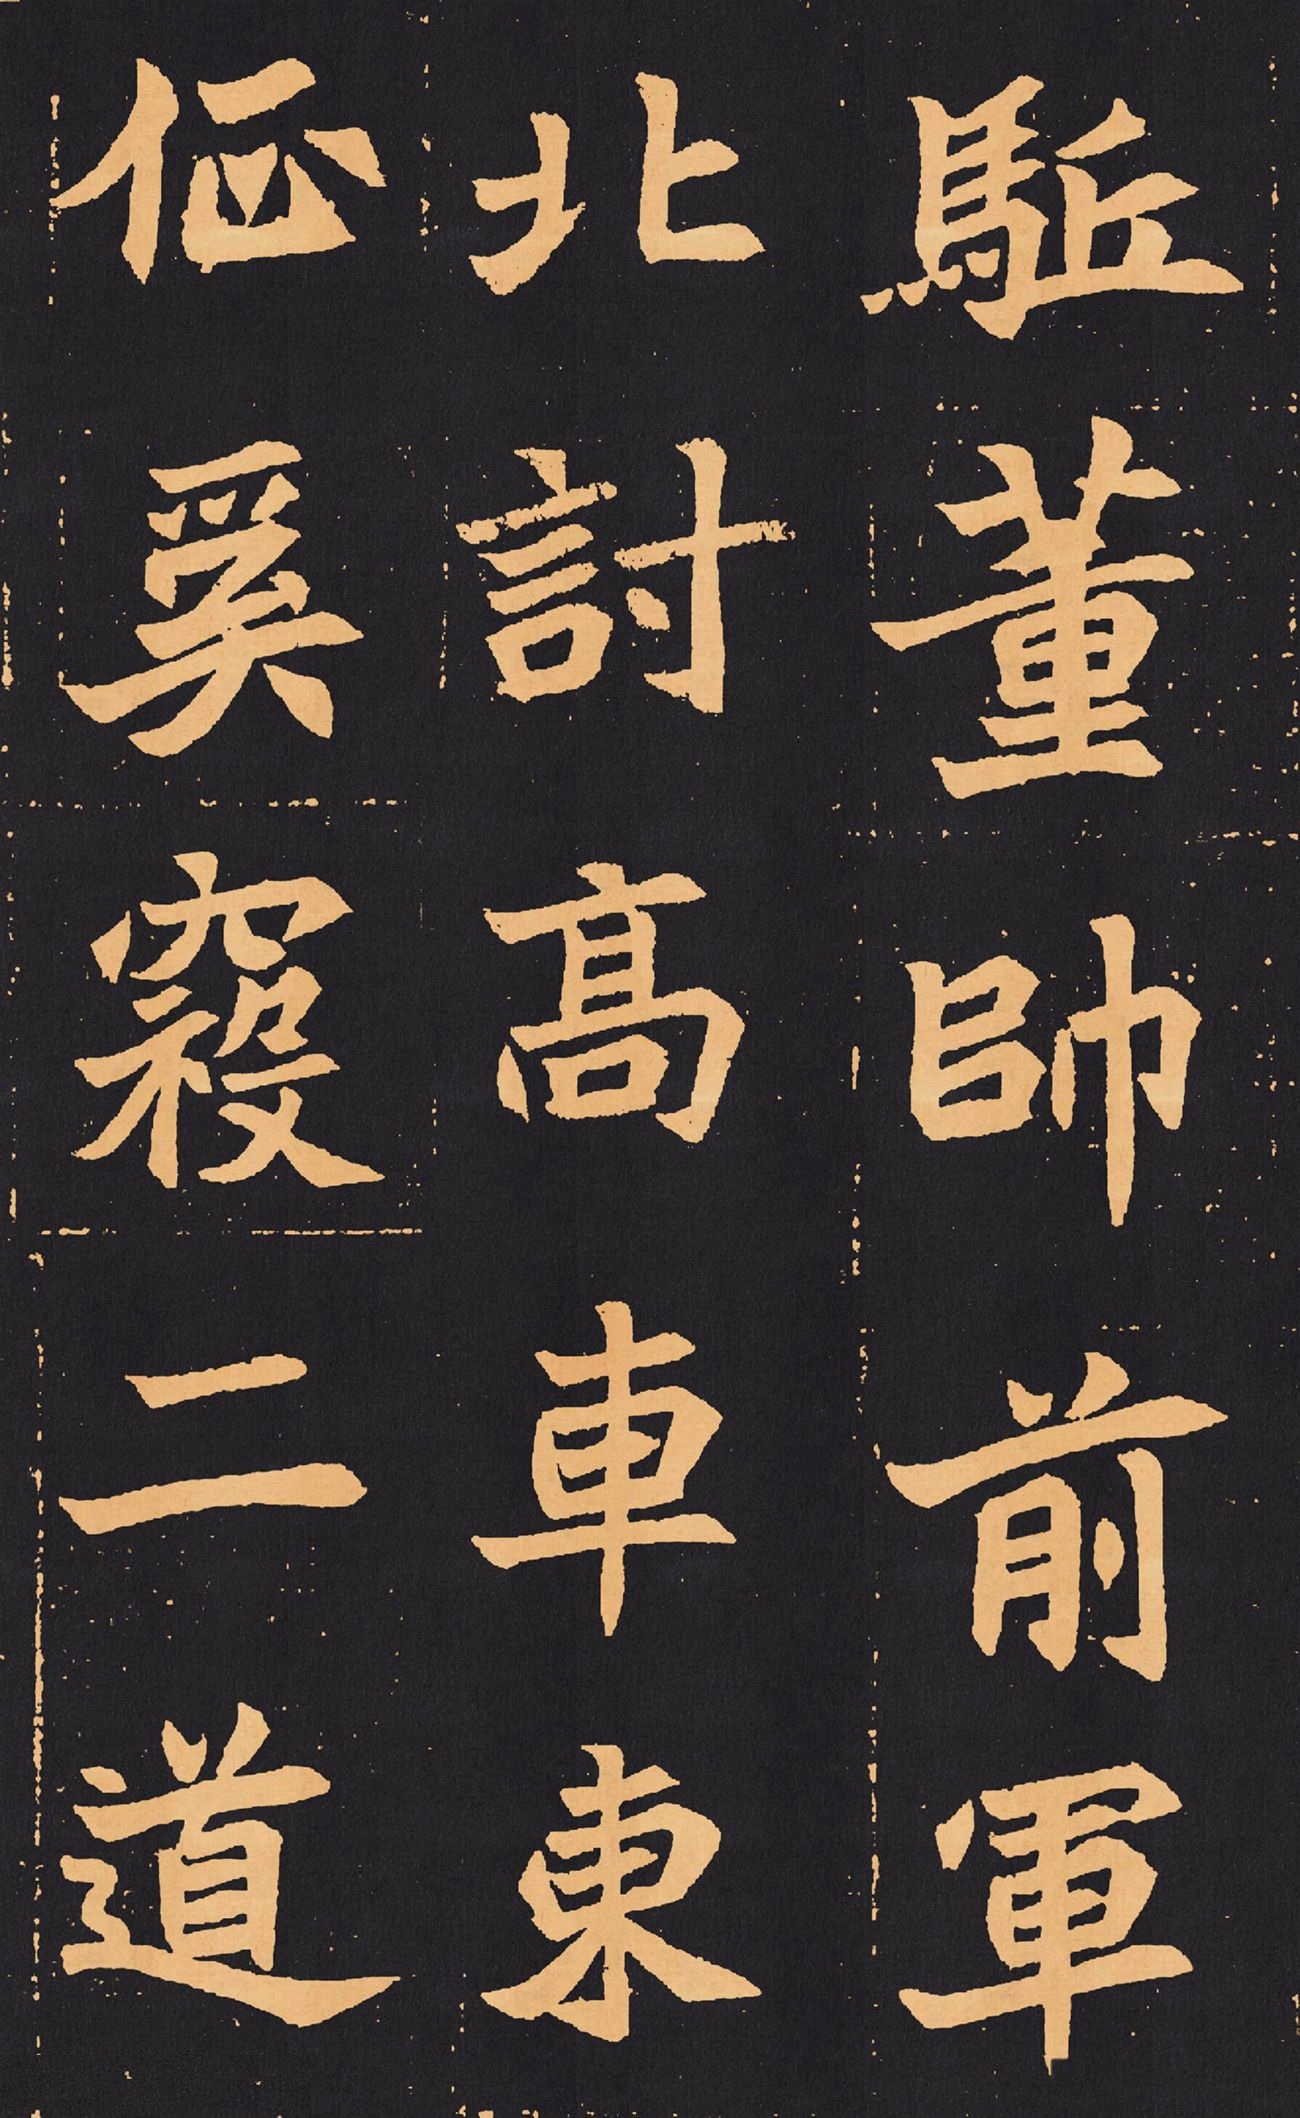 駈董帥前軍
北討高車東
征奚二道